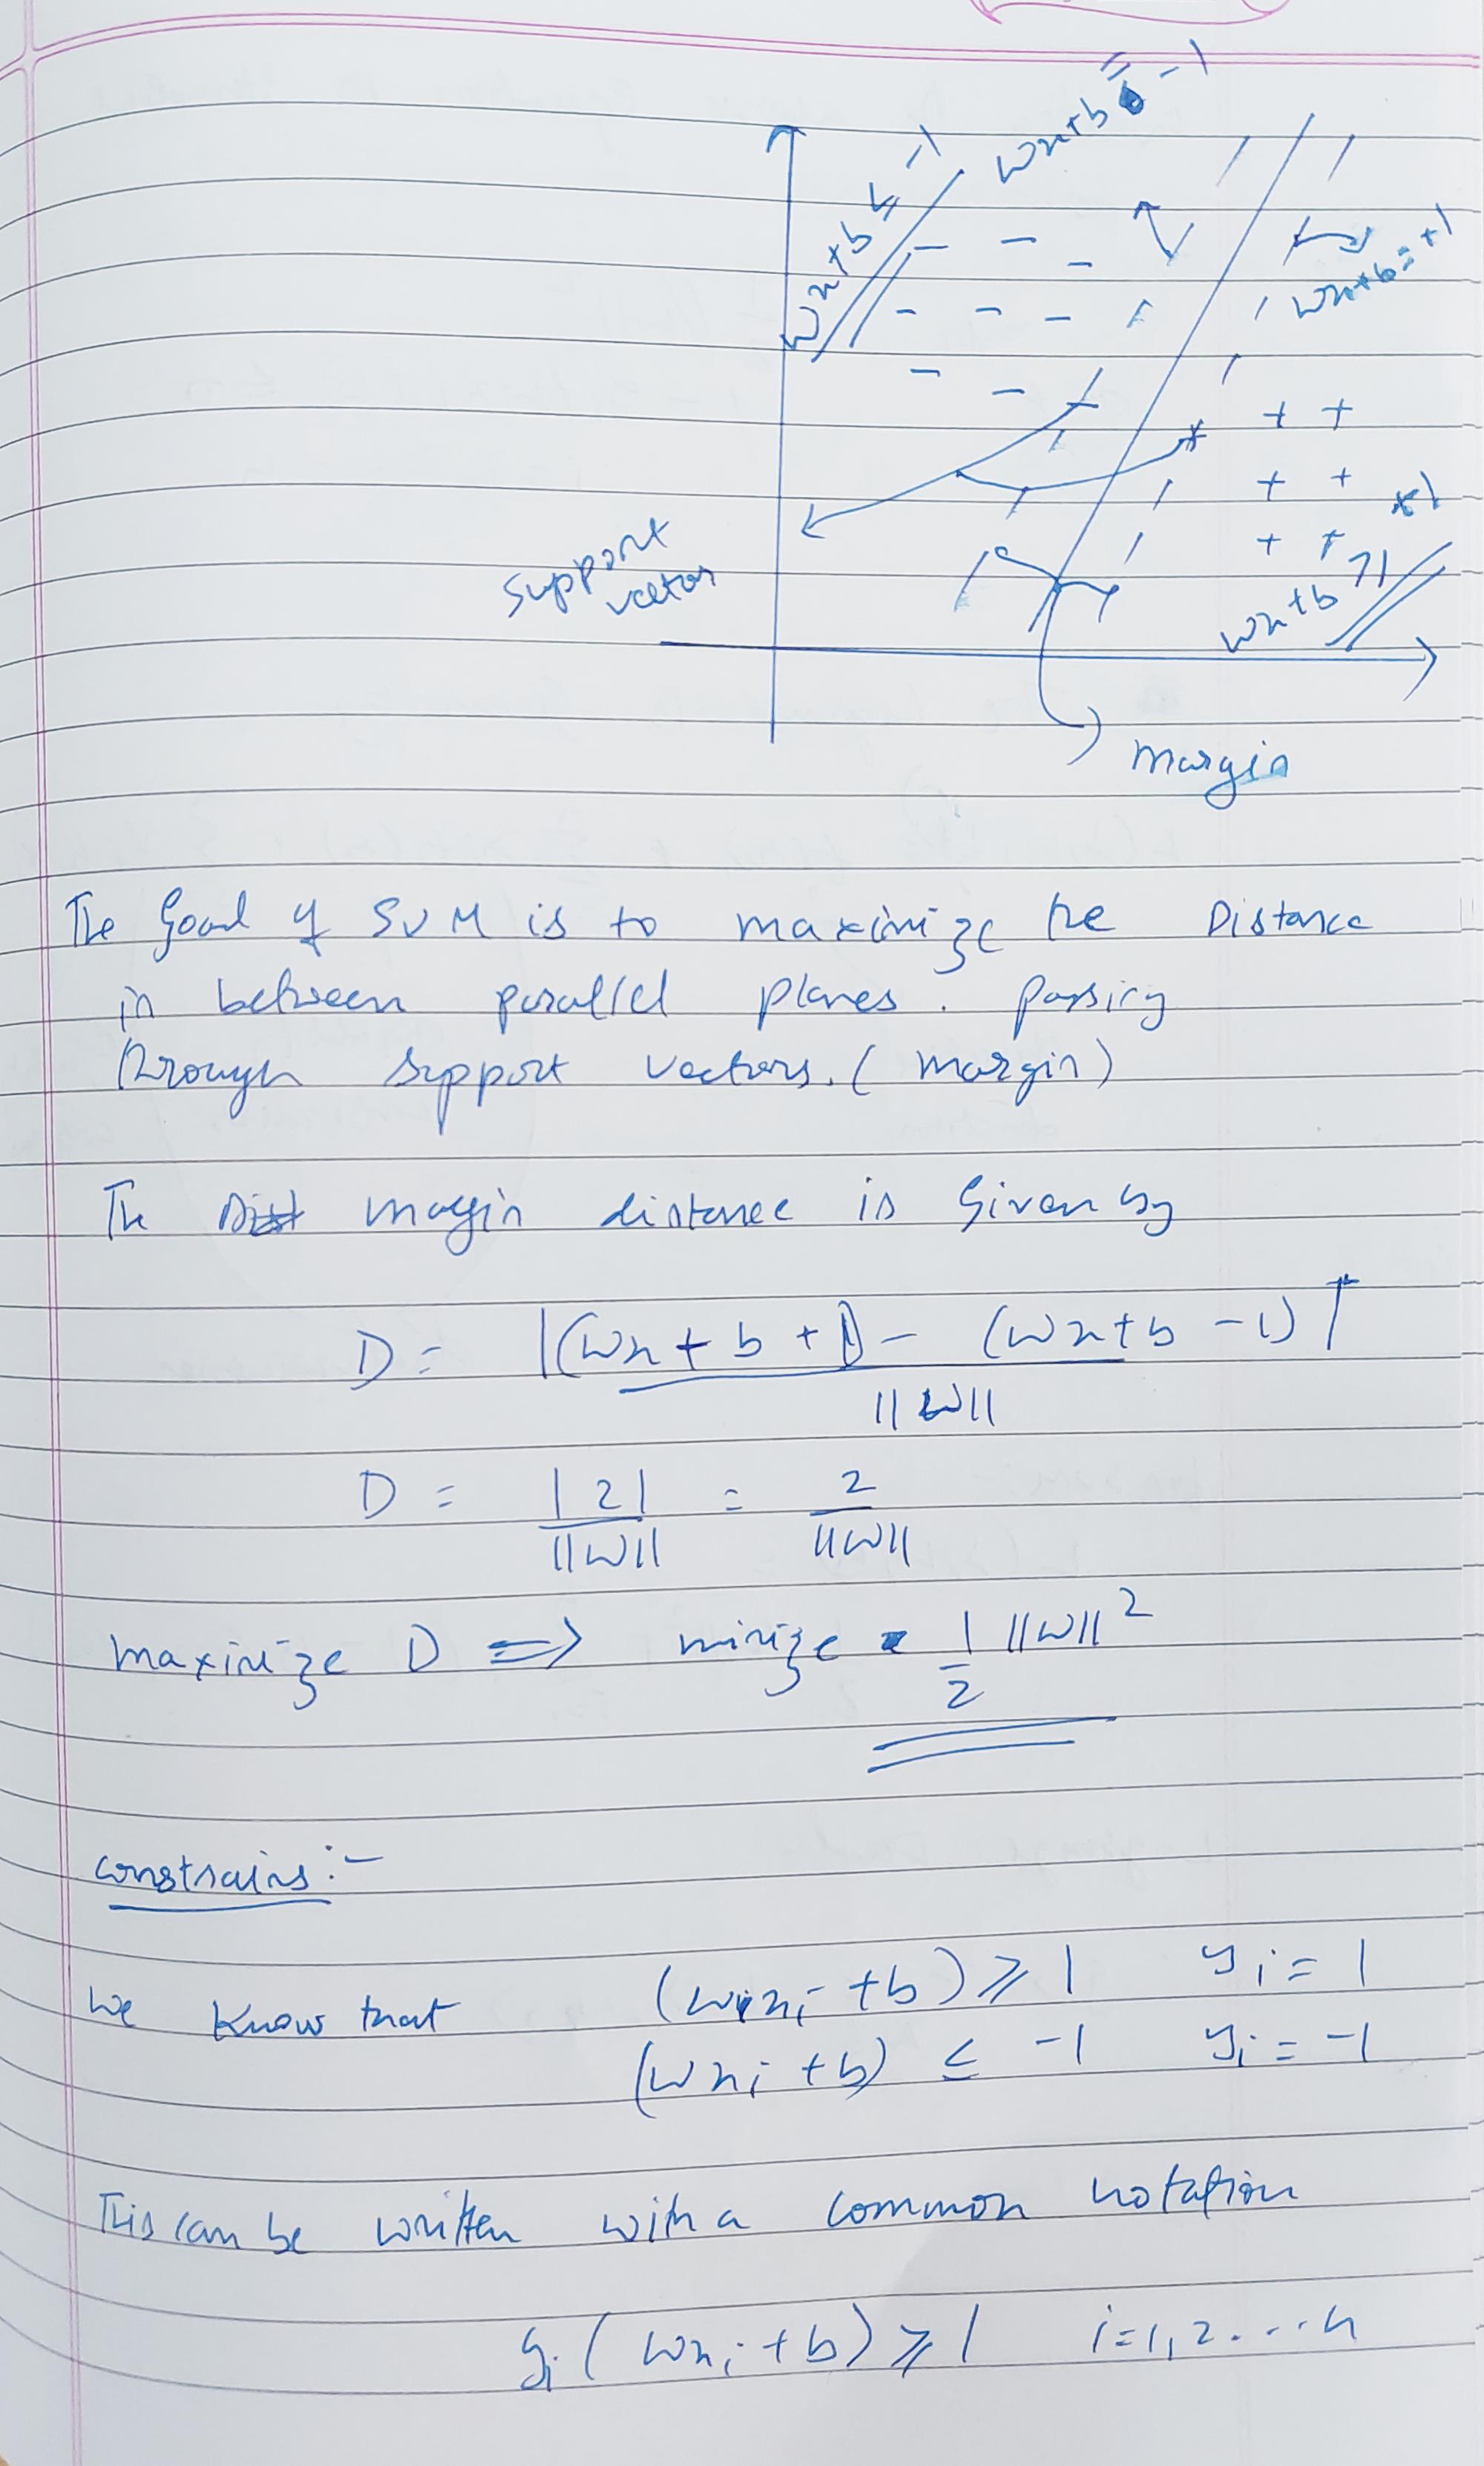 wx+b = -1
wx+b ≤ -1
wx+b = +1
support
vector
+1
wx+b ≥ 1
margin
The Goal of SVM is to maximize the Distance
in between parallel planes. passing
through support vectors. (margin)
The margin distance is Given by
D = |(wx + b + 1) - (wx+b -1)|
||w||
D = |2| / ||w|| = 2 / ||w||
maximize D => minize 1/2 ||w||²
constrains :-
We Know that (wxi +b) ≥ 1 yi = 1
(wxi +b) ≤ -1 yi = -1
This can be written with a common notation
yi (wxi +b) ≥ 1 i=1,2....n